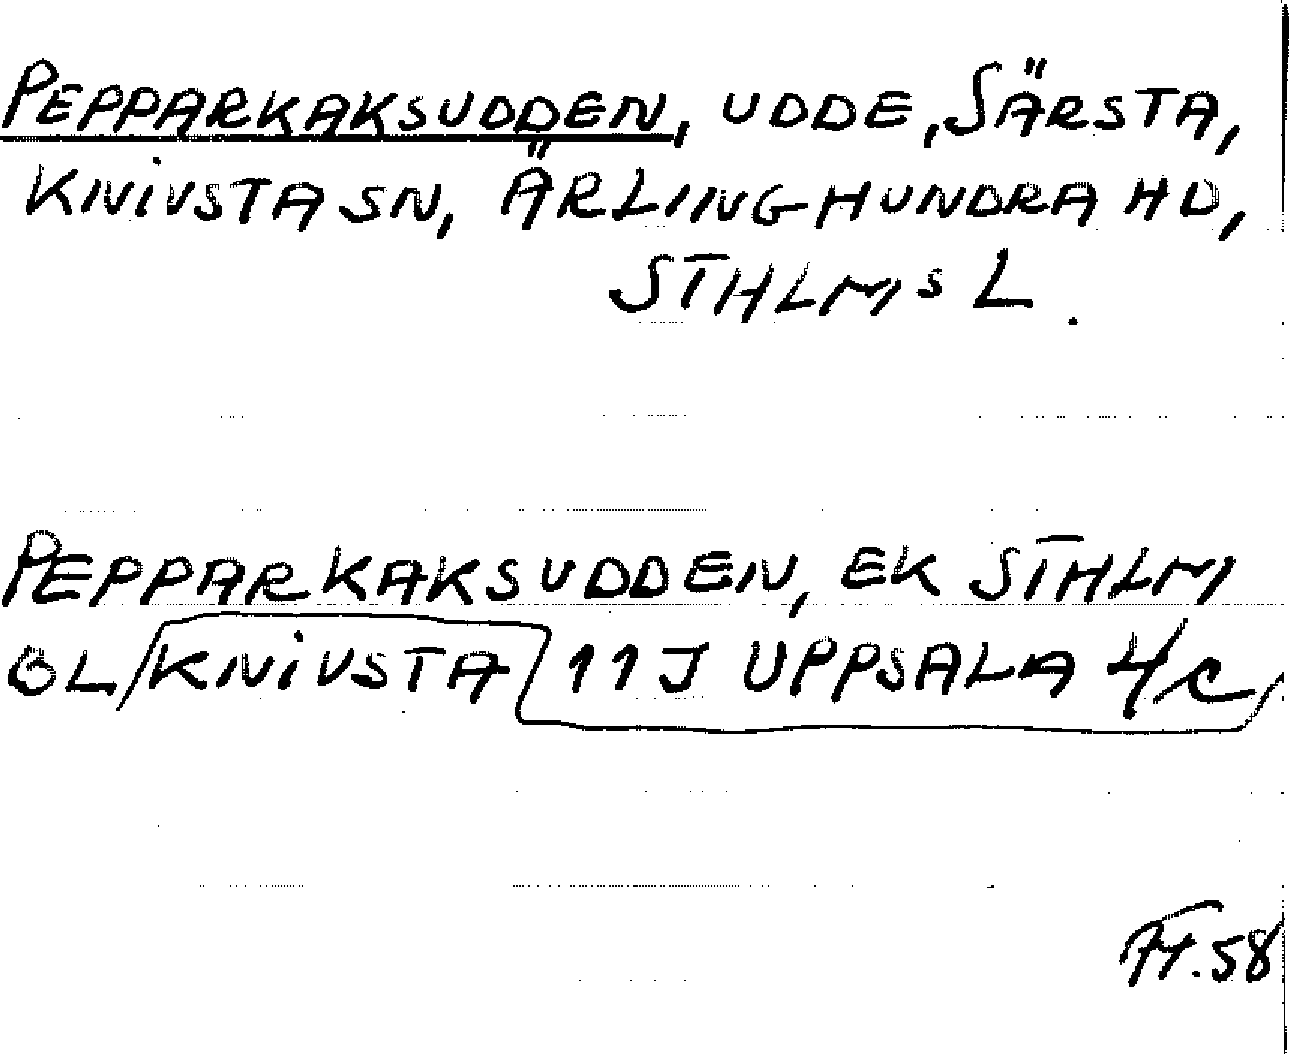 PEPPARKAKSUDDEN, UDDE, SÄRSTA,
KNIVSTA SN, ÄRLINGHUNDRA HD,
STHLMS L.
PEPPARKAKSUDDEN, EK STHLM
ÖL/KNIVSTA 11J UPPSALA 4/c
58